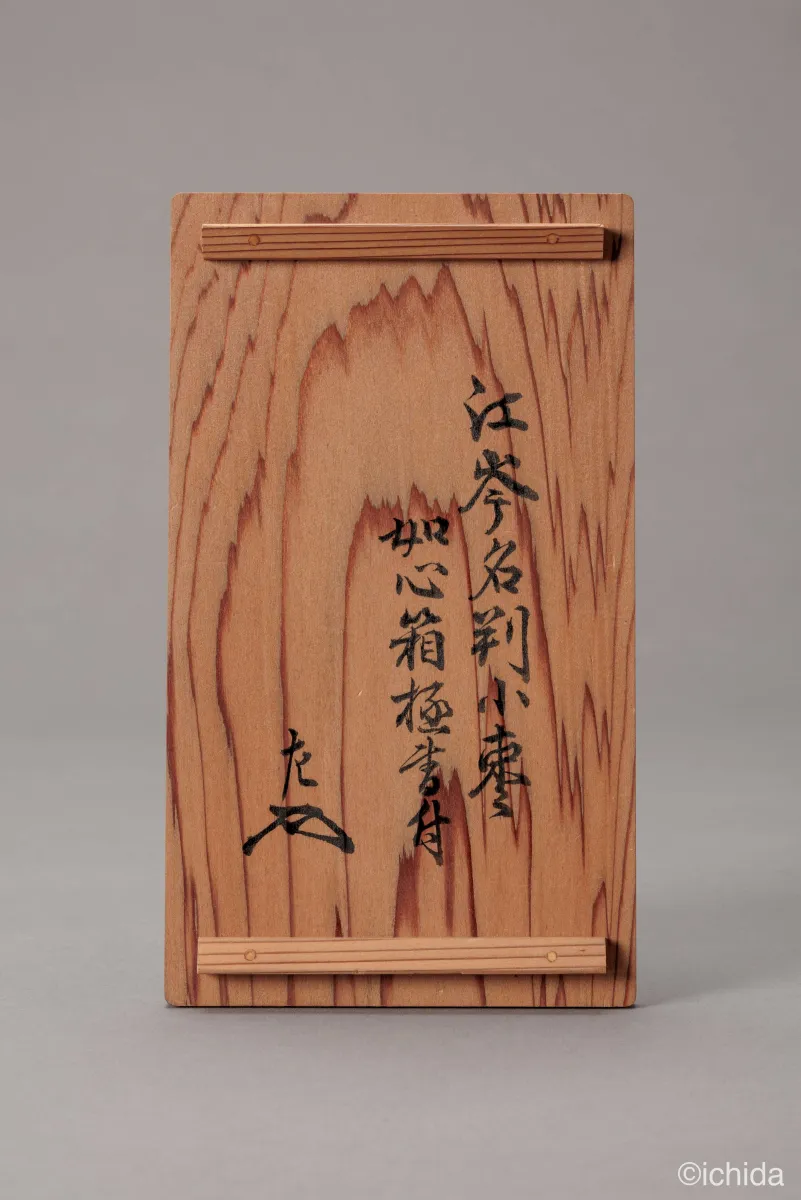 江岑名判小棗
如心箱極書付
左
©ichida